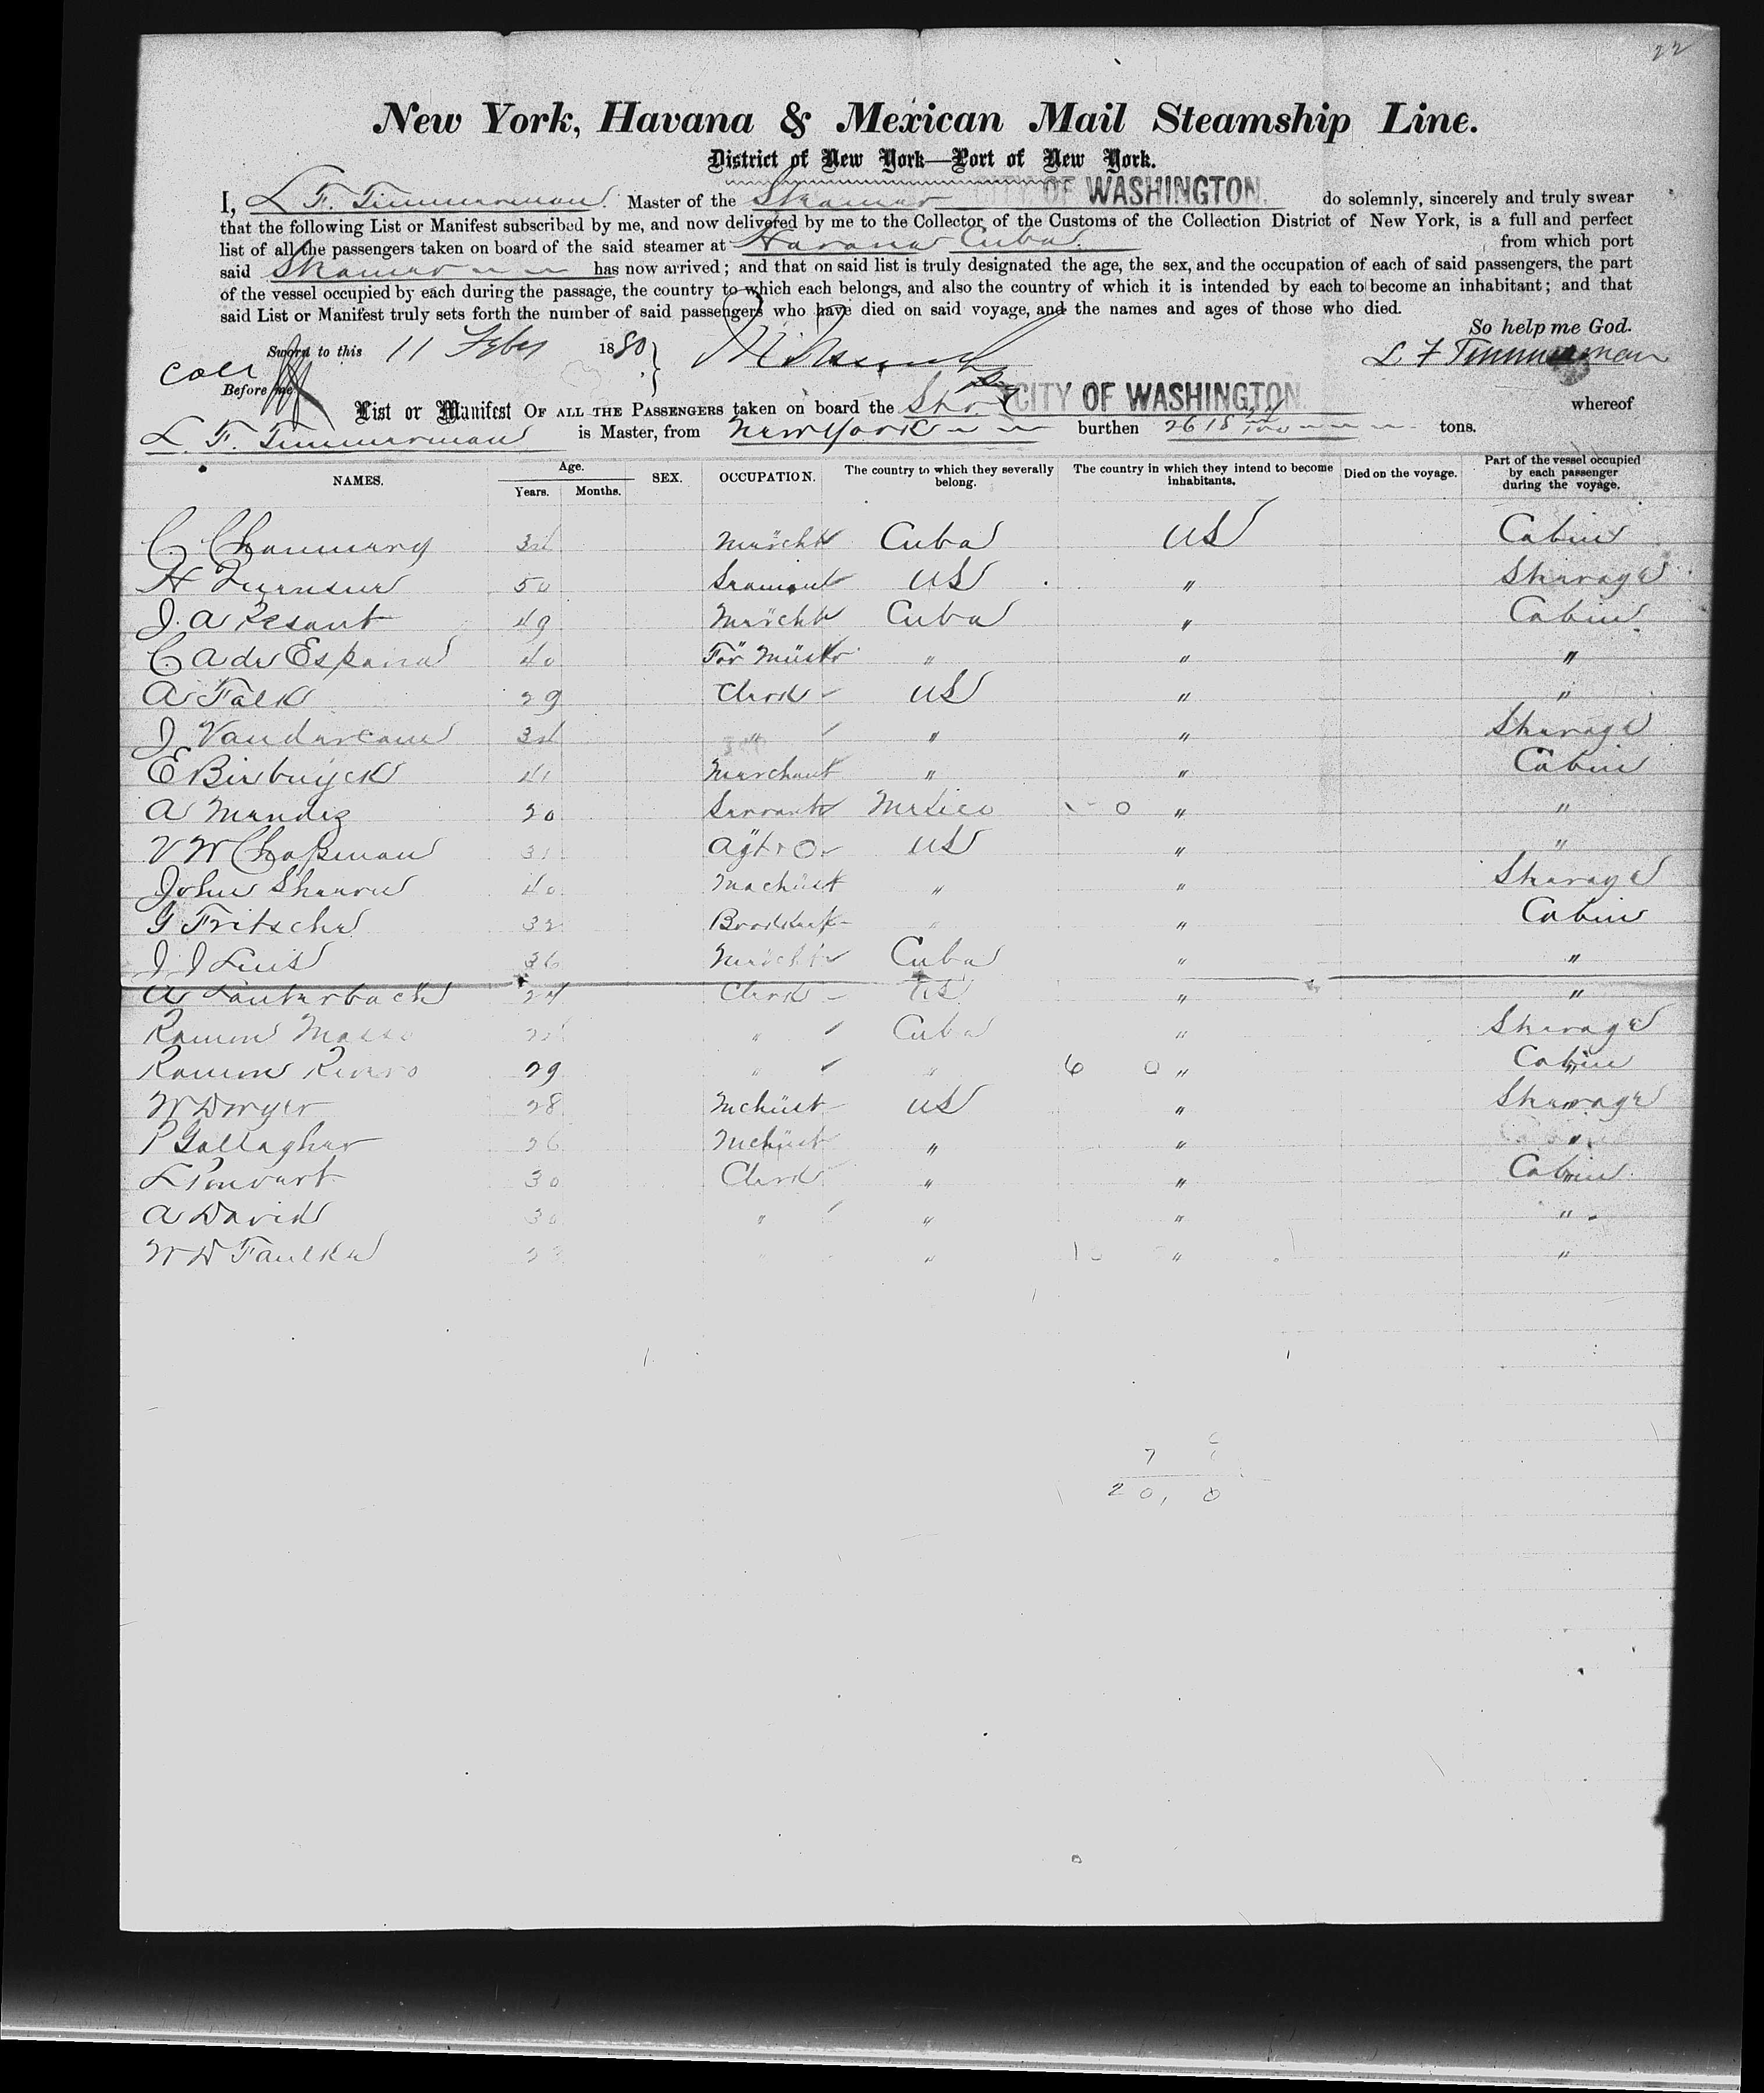 22
New York, Havana & Mexican Mail Steamship Line.
District of New York—Port of New York.
I, L. F. Timmerman. Master of the Steamer CITY OF WASHINGTON. do solemnly, sincerely and truly swear
that the following List or Manifest subscribed by me, and now delivered by me to the Collector of the Customs of the Collection District of New York, is a full and perfect
list of all the passengers taken on board of the said steamer at Havana Cuba. from which port
said Steamer has now arrived; and that on said list is truly designated the age, the sex, and the occupation of each of said passengers, the part
of the vessel occupied by each during the passage, the country to which each belongs, and also the country of which it is intended by each to become an inhabitant; and that
said List or Manifest truly sets forth the number of said passengers who have died on said voyage, and the names and ages of those who died.
So help me God.
Sworn to this 11 Feby 1880 L F Timmerman
Before me
List or Manifest OF ALL THE PASSENGERS taken on board the Str CITY OF WASHINGTON. whereof
L. F. Timmerman is Master, from New York burthen 2618 tons.
NAMES. Age. Years. Months. SEX. OCCUPATION. The country to which they severally belong. The country in which they intend to become inhabitants. Died on the voyage. Part of the vessel occupied by each passenger during the voyage.
C. 34 Mercht Cuba US Cabin
H 50 US " Steerage
J. A 49 Mercht Cuba " Cabin
C. A de Espana 40 " " "
A Falk 29 Clerk US " "
J 34 " " " Steerage
E 41 Merchant " " Cabin
A Mendez 20 Servant Mexico " "
V W Chapman 31 US " "
John 40 Machist " " Steerage
G Fritsche 32 " " Cabin
J J Luis 36 Mercht Cuba " "
A Lauterbach 24 Clerk US " "
Ramon " Cuba " Steerage
Ramon Rivero 29 " " " Cabin
W Dwyer 28 Mchist US " Steerage
P Gallagher 26 Mchist " " "
L 30 Clerk " " Cabin
A David 30 " " " "
W D 23 " " " "